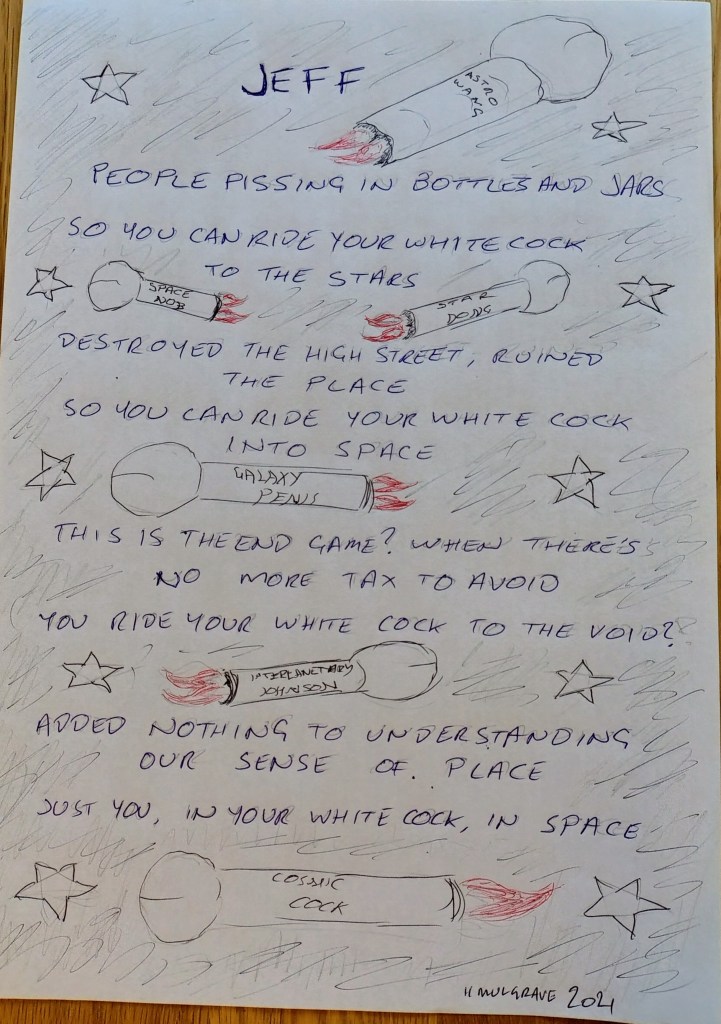 JEFF
ASTRO
WANG
PEOPLE PISSING IN BOTTLES AND JARS
SO YOU CAN RIDE YOUR WHITE COCK
TO THE STARS
SPACE
NOB
STAR
DONG
DESTROYED THE HIGH STREET, RUINED
THE PLACE
SO YOU CAN RIDE YOUR WHITE COCK
INTO SPACE
GALAXY
PENIS
THIS IS THE END GAME? WHEN THERE'S
NO MORE TAX TO AVOID
YOU RIDE YOUR WHITE COCK TO THE VOID?
INTERPLANETARY
JOHNSON
ADDED NOTHING TO UNDERSTANDING
OUR SENSE OF PLACE
JUST YOU, IN YOUR WHITE COCK, IN SPACE
COSMIC
COCK
MULGRAVE 2021